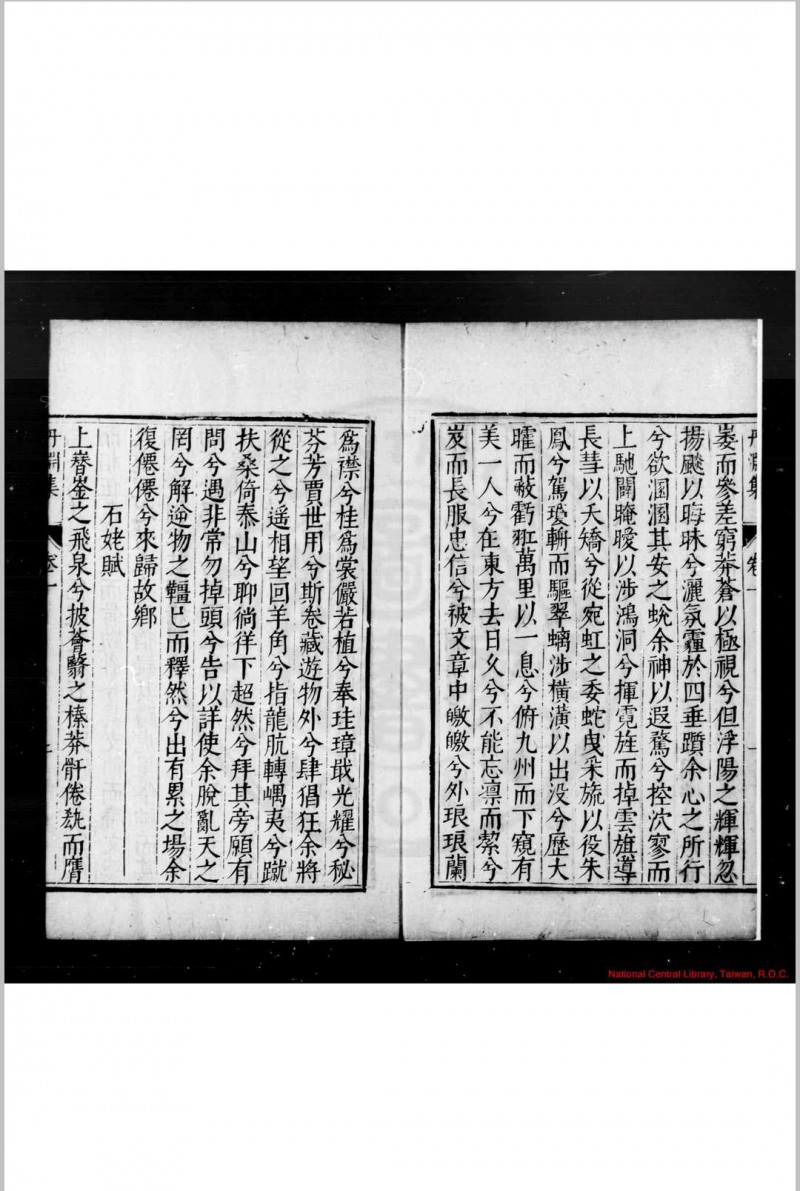 丹淵集 卷一
崣而參差窮莽蒼以極視兮但浮陽之輝輝忽
揚飈以晦昧兮灑氛霾於四垂躓余心之所行
兮欲溷溷其安之蛻余神以遐騖兮控次寥而
上馳闢晻曖以涉鴻洞兮揮霓旌而掉雲旗導
長彗以夭矯兮從宛虹之委蛇曳采旒以役朱
鳳兮駕瓊軿而驅翠螭涉橫潢以出没兮歷大
曜而蔽虧羾萬里以一息兮俯九州而下窺有
美一人兮在東方去日久兮不能忘凛而潔兮
岌而長服忠信兮被文章中皦皦兮外琅琅蘭
爲襟兮桂爲裳儼若植兮奉珪璋戢光耀兮秘
芬芳賈世用兮斯卷藏遊物外兮肆猖狂余將
從之兮遥相望回羊角兮指龍肮轉嵎夷兮蹴
扶桑倚泰山兮聊徜徉下超然兮拜其旁願有
問兮遇非常勿掉頭兮告以詳使余脫亂天之
罔兮解逆物之韁已而釋然兮出有累之場余
復僊僊兮來歸故鄉
石姥賦
上嵾崟之飛泉兮披薈翳之榛莽骭倦𣣓而膺
丹淵集 卷一
National Central Library, Taiwan, R.O.C.